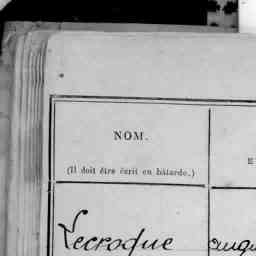 NOM.
(Il doit être écrit en bâtarde.)
E
Lecroque augu